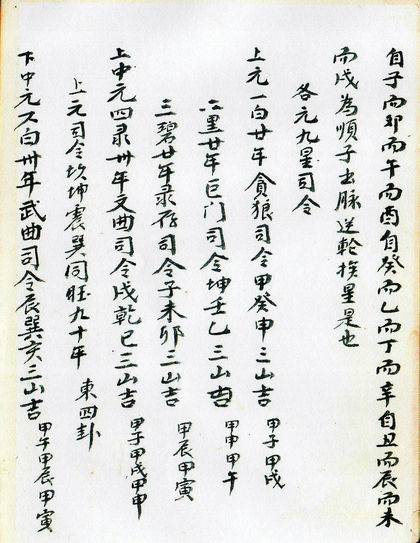 自子而卯而午而酉自癸而乙而丁而辛自丑而辰而未
而戌為順子出脉逆輪挨星是也
各元九星司令
上元一白廿年貪狼司令甲癸申三山吉 甲子甲戌
二黑廿年巨门司令坤壬乙三山吉 甲申甲午
三碧廿年录存司令子未卯三山吉 甲辰甲寅
上中元四录卅年文曲司令戌乾巳三山吉 甲子甲戌甲申
上元司令坎坤震巽同旺九十年 東四卦
下中元六白卅年武曲司令辰巽亥三山吉 甲午甲辰甲寅